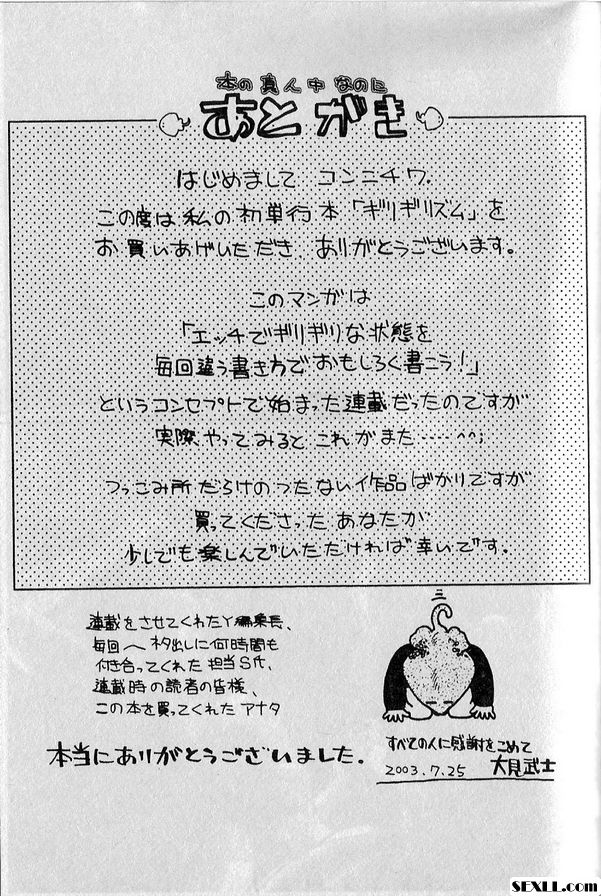 本の真ん中なのに
あとがき
はじめまして コンニチワ.
この度は私の初単行本「ギリギリズム」を
お買いあげいただき ありがとうございます.
このマンガは
「エッチでギリギリな状態を
毎回違う書き方でおもしろく書こう!」
というコンセプトで始まった連載だったのですが
実際やってみると これがまた……^^;
つっこみ所だらけのつたない作品ばかりですが
買ってくださった あなたが
少しでも楽しんでいただければ幸いです.
連載をさせてくれたY編集長、
毎回へネタ出しに何時間も
付き合ってくれた担当S氏、
連載時の読者の皆様、
この本を買ってくれた アナタ
本当にありがとうございました.
すべての人に感謝をこめて
2003.7.25 大見武士
SEXLL.com